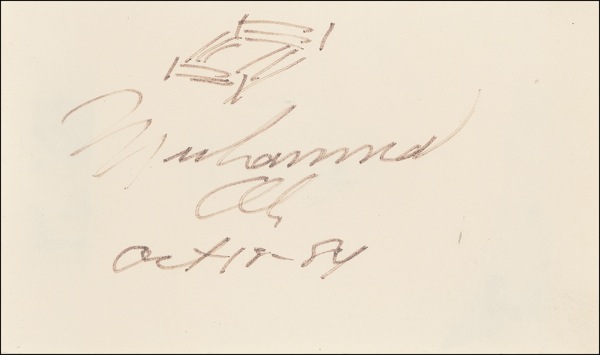 Muhammad
Ali
Oct 18-84